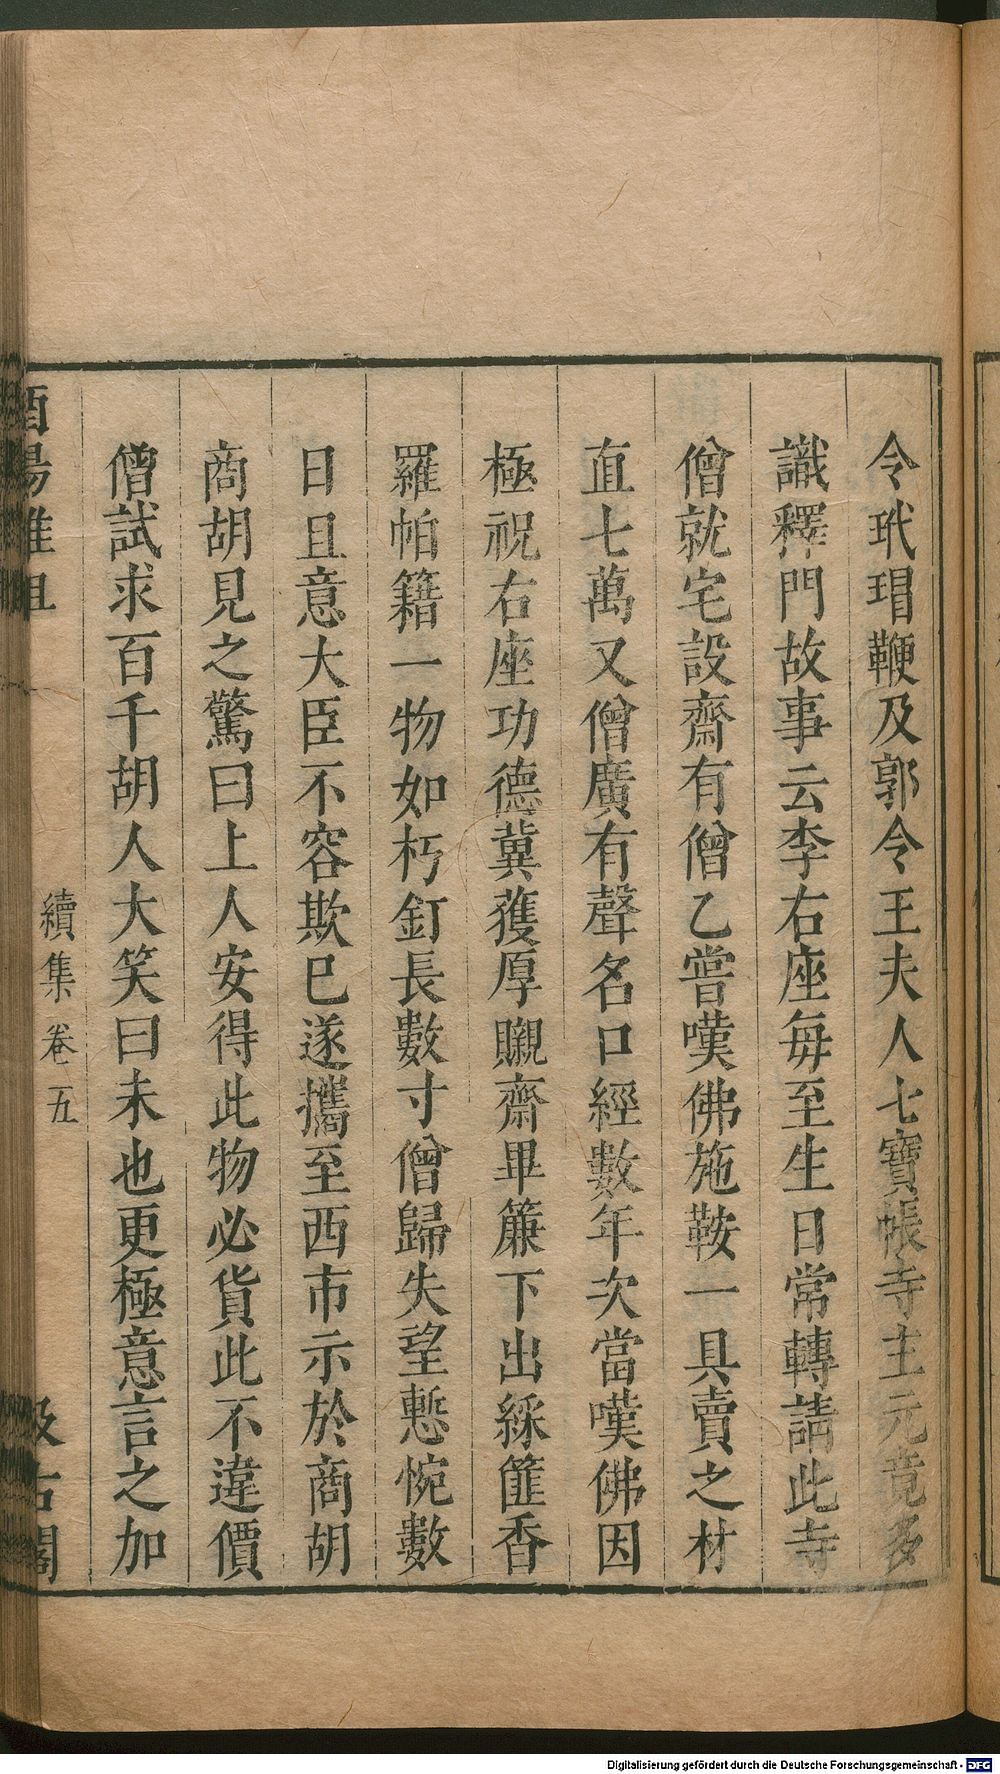 令玳瑁鞭及郭令王夫人七寶帳寺主元竟多
識釋門故事云李右座每至生日常轉請此寺
僧就宅設齋有僧乙嘗嘆佛施鞍一具賣之材
直七萬又僧廣有聲名口經數年次當嘆佛因
極祝右座功德冀獲厚䞋齋畢簾下出綵篚香
羅帕籍一物如朽釘長數寸僧歸失望慙惋數
日且意大臣不容欺巳遂攜至西市示於商胡
商胡見之驚曰上人安得此物必貨此不違價
僧試求百千胡人大笑曰未也更極意言之加
酉陽雜俎 續集卷五 汲古閣
Digitalisierung gefördert durch die Deutsche Forschungsgemeinschaft - DFG